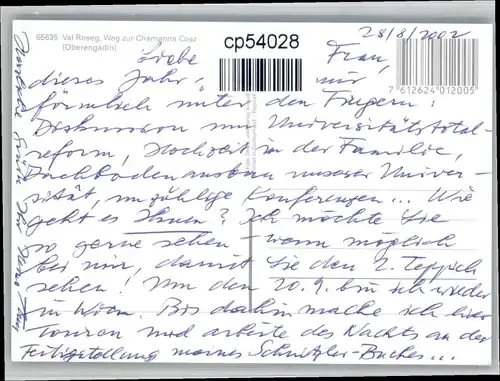 65635 Val Roseg, Weg zur Chamanna Coaz
(Oberengadin)
cp54028
28/8/2002
7 612624 012005
Liebe Frau,
dieses Jahr, mir
förmlich unter den Fingern:
Diskussion um Universitätstotal-
reform, Hochzeit in der Familie,
Dachbodenausbau unserer Univer-
sität, unzählige Konferenzen... Wie
geht es Ihnen? Ich möchte Sie
so gerne sehen – wenn möglich
bei mir, damit Sie den 2. Teppich
sehen! Um den 20.9. bin ich wieder
in Wien. Bis dahin mache ich hier
Touren und arbeite des Nachts an der
Fertigstellung meines Schnitzler-Buches...
Herzliche Grüße Ihr